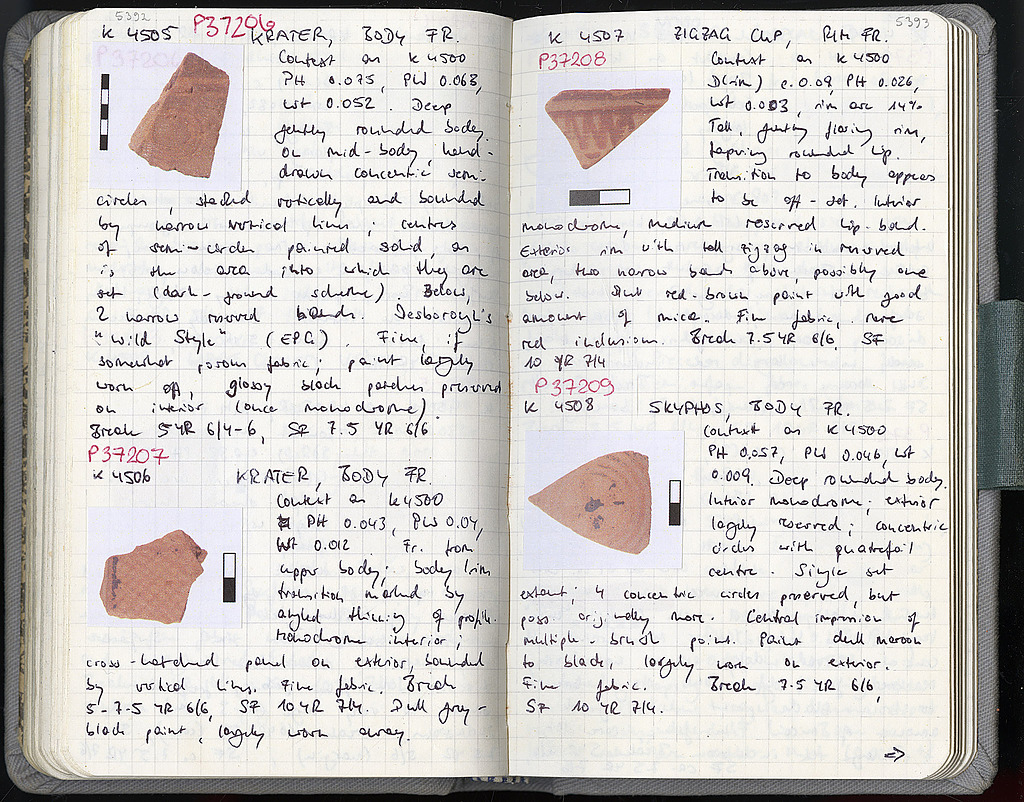 5392
K 4505 P37206 KRATER, BODY FR.
Context as K 4500
PH 0.075, PW 0.068,
WT 0.052. Deep
gently rounded body.
On mid-body, hand-
drawn concentric semi-
circles, stacked vertically and bounded
by narrow vertical lines; centres
of semi-circles painted solid, as
is the area into which they are
set (dark-ground scheme). Below,
2 narrow reserved bands. Desborough's
"Wild Style" (EPG). Fine, if
somewhat porous fabric; paint largely
worn off, glossy black patches preserved
on interior (once monochrome).
Break 5 YR 6/4-6, SF 7.5 YR 6/6
P37207
K 4506 KRATER, BODY FR.
Context as K 4500
PH 0.043, PW 0.04,
WT 0.012 Fr. from
upper body; body/rim
transition marked by
angled thinning of profile.
Monochrome interior;
cross-hatched panel on exterior, bounded
by vertical lines. Fine fabric. Break
5-7.5 YR 6/6, SF 10 YR 7/4. Dull grey-
black paint, largely worn away.
5393
K 4507 ZIGZAG CUP, RIM FR.
P37208
Context as K 4500
D(rim) c. 0.09, PH 0.026,
WT 0.003, rim arc 14%
Tall, gently flaring rim,
tapering rounded lip.
Transition to body appears
to be off-set. Interior
monochrome, medium reserved lip-band.
Exterior rim with tall zigzag in reserved
area, two narrow bands above, possibly one
below. Dull red-brown paint with good
amount of mica. Fine fabric, rare
red inclusions. Break 7.5 YR 6/6, SF
10 YR 7/4
P37209
K 4508 SKYPHOS, BODY FR.
Context as K 4500
PH 0.057, PW 0.046, WT
0.009. Deep rounded body.
Interior monochrome; exterior
largely reserved; concentric
circles with quatrefoil
centre. Single set
extant; 4 concentric circles preserved, but
poss originally more. Central impression of
multiple-brush point. Paint dull maroon
to black, largely worn on exterior.
Fine fabric. Break 7.5 YR 6/6,
SF 10 YR 7/4.
⇒